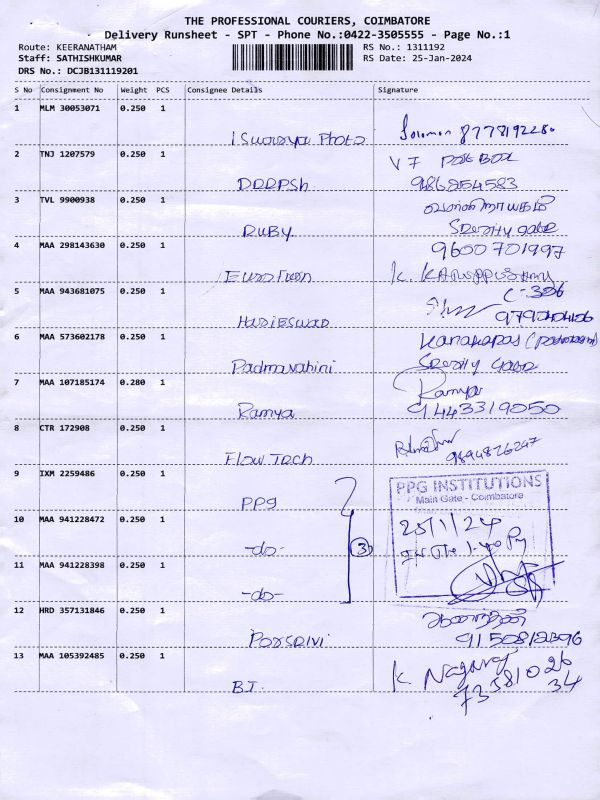 THE PROFESSIONAL COURIERS, COIMBATORE
Delivery Runsheet - SPT - Phone No.:0422-3505555 - Page No.:1
Route: KEERANATHAM RS No.: 1311192
Staff: SATHISHKUMAR RS Date: 25-Jan-2024
DRS No.: DCJB131119201
S No Consignment No Weight PCS Consignee Details Signature
1 MLM 30053071 0.250 1
iswarya Photo Solomon
2 TNJ 1207579 0.250 1 V7 POST BOX
DEEPSh 986254583
3 TVL 9900938 0.250 1
RUBY Security gate
4 MAA 298143630 0.250 1 9600701997
EuroTeen K.
5 MAA 943681075 0.250 1 C-306
6 MAA 573602178 0.250 1
Padmavahini Security Gate
7 MAA 107185174 0.280 1 Ramya
Ramya 91443319050
8 CTR 172908 0.250 1
Flow Tech 9894826247
9 IXM 2259486 0.250 1 PPG INSTITUTIONS
PPG Main Gate - Coimbatore
10 MAA 941228472 0.250 1 25/1/24
-do- 3
11 MAA 941228398 0.250 1
-do-
12 HRD 357131846 0.250 1
9150812396
13 MAA 105392485 0.250 1 K Nagaraj
B.I. 73581026
34